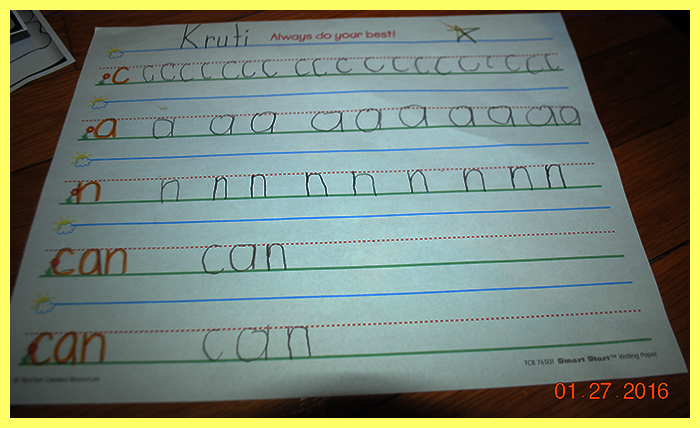 Kruti Always do your best!
c c c c c c c c c c c c c c c c c c c c
a a a a a a a a a a a
n n n n n n n n n n
can can
can can
TCR 76501 Smart Start™ Writing Paper
© Teacher Created Resources
01.27.2016